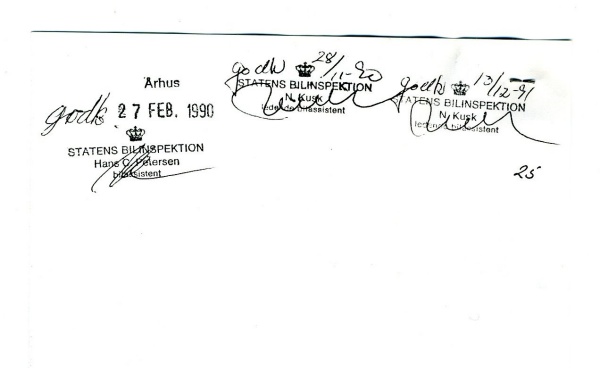 Århus
godk 27 FEB. 1990
STATENS BILINSPEKTION
Hans C. Petersen
bilassistent
godk 28/11-90
STATENS BILINSPEKTION
N. Kusk
ledende bilassistent
godk 13/12-91
STATENS BILINSPEKTION
N. Kusk
ledende bilassistent
25